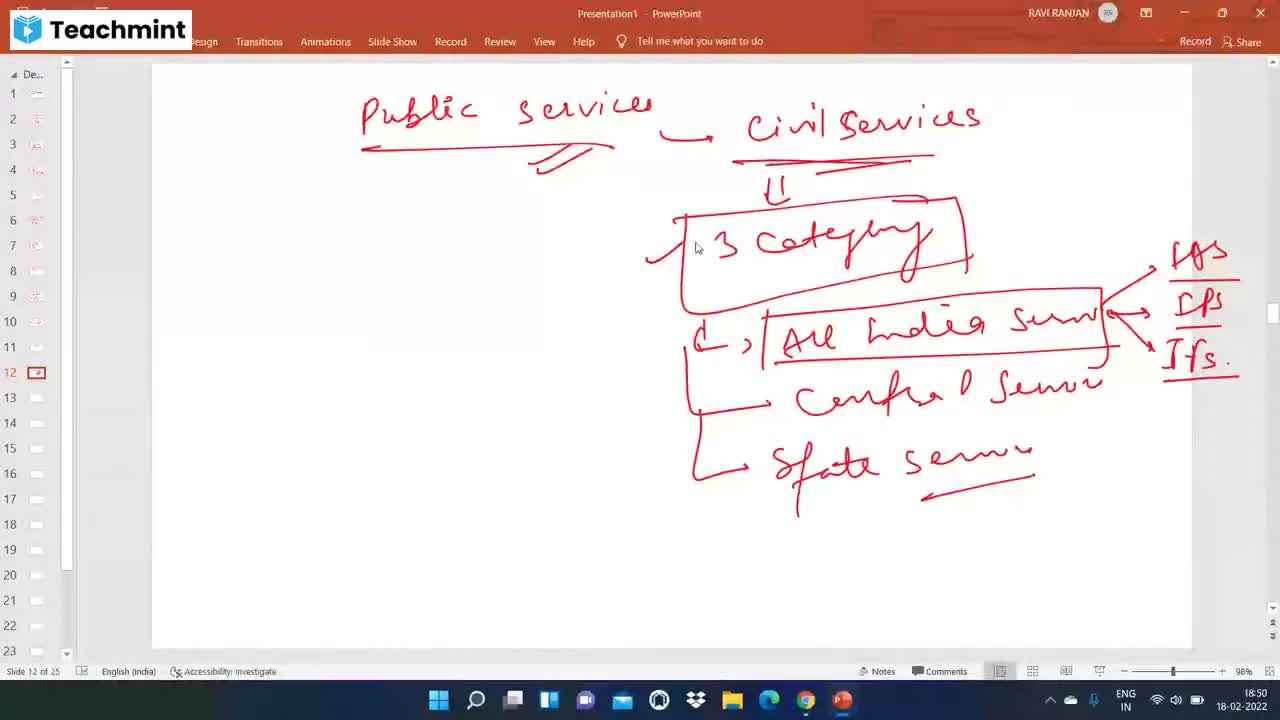 Presentation1 - PowerPoint
RAVI RANJAN
Teachmint
Design Transitions Animations Slide Show Record Review View Help Tell me what you want to do
Record Share
De...
1
2
3
4
5
6
7
8
9
10
11
12
13
14
15
16
17
18
19
20
21
22
23
Public services → Civil services
3 Category
All India Serv
IAS
IPS
Ifs.
Central Serv
State Serv
Slide 12 of 25 English (India) Accessibility: Investigate
Notes Comments 98%
ENG
IN
18:50
18-02-2022